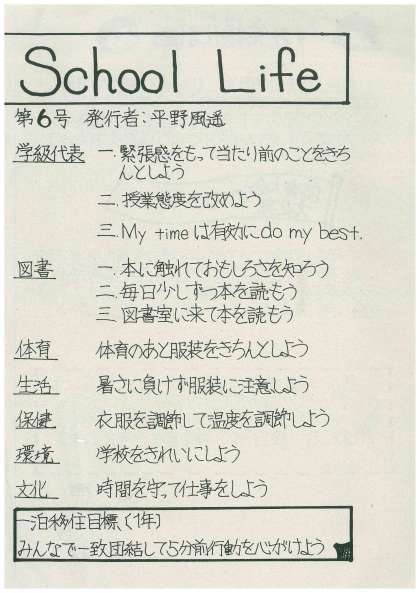 School Life
第6号 発行者:平野風遥
学級代表 一.緊張感をもって当たり前のことをきち
んとしよう
二.授業態度を改めよう
三.My timeは有効にdo my best.
図書 一.本に触れておもしろさを知ろう
二.毎日少しずつ本を読もう
三.図書室に来て本を読もう
体育 体育のあと服装をきちんとしよう
生活 暑さに負けず服装に注意しよう
保健 衣服を調節して温度を調節しよう
環境 学校をきれいにしよう
文化 時間を守って仕事をしよう
一泊移住目標〈1年〉
みんなで一致団結して5分前行動を心がけよう